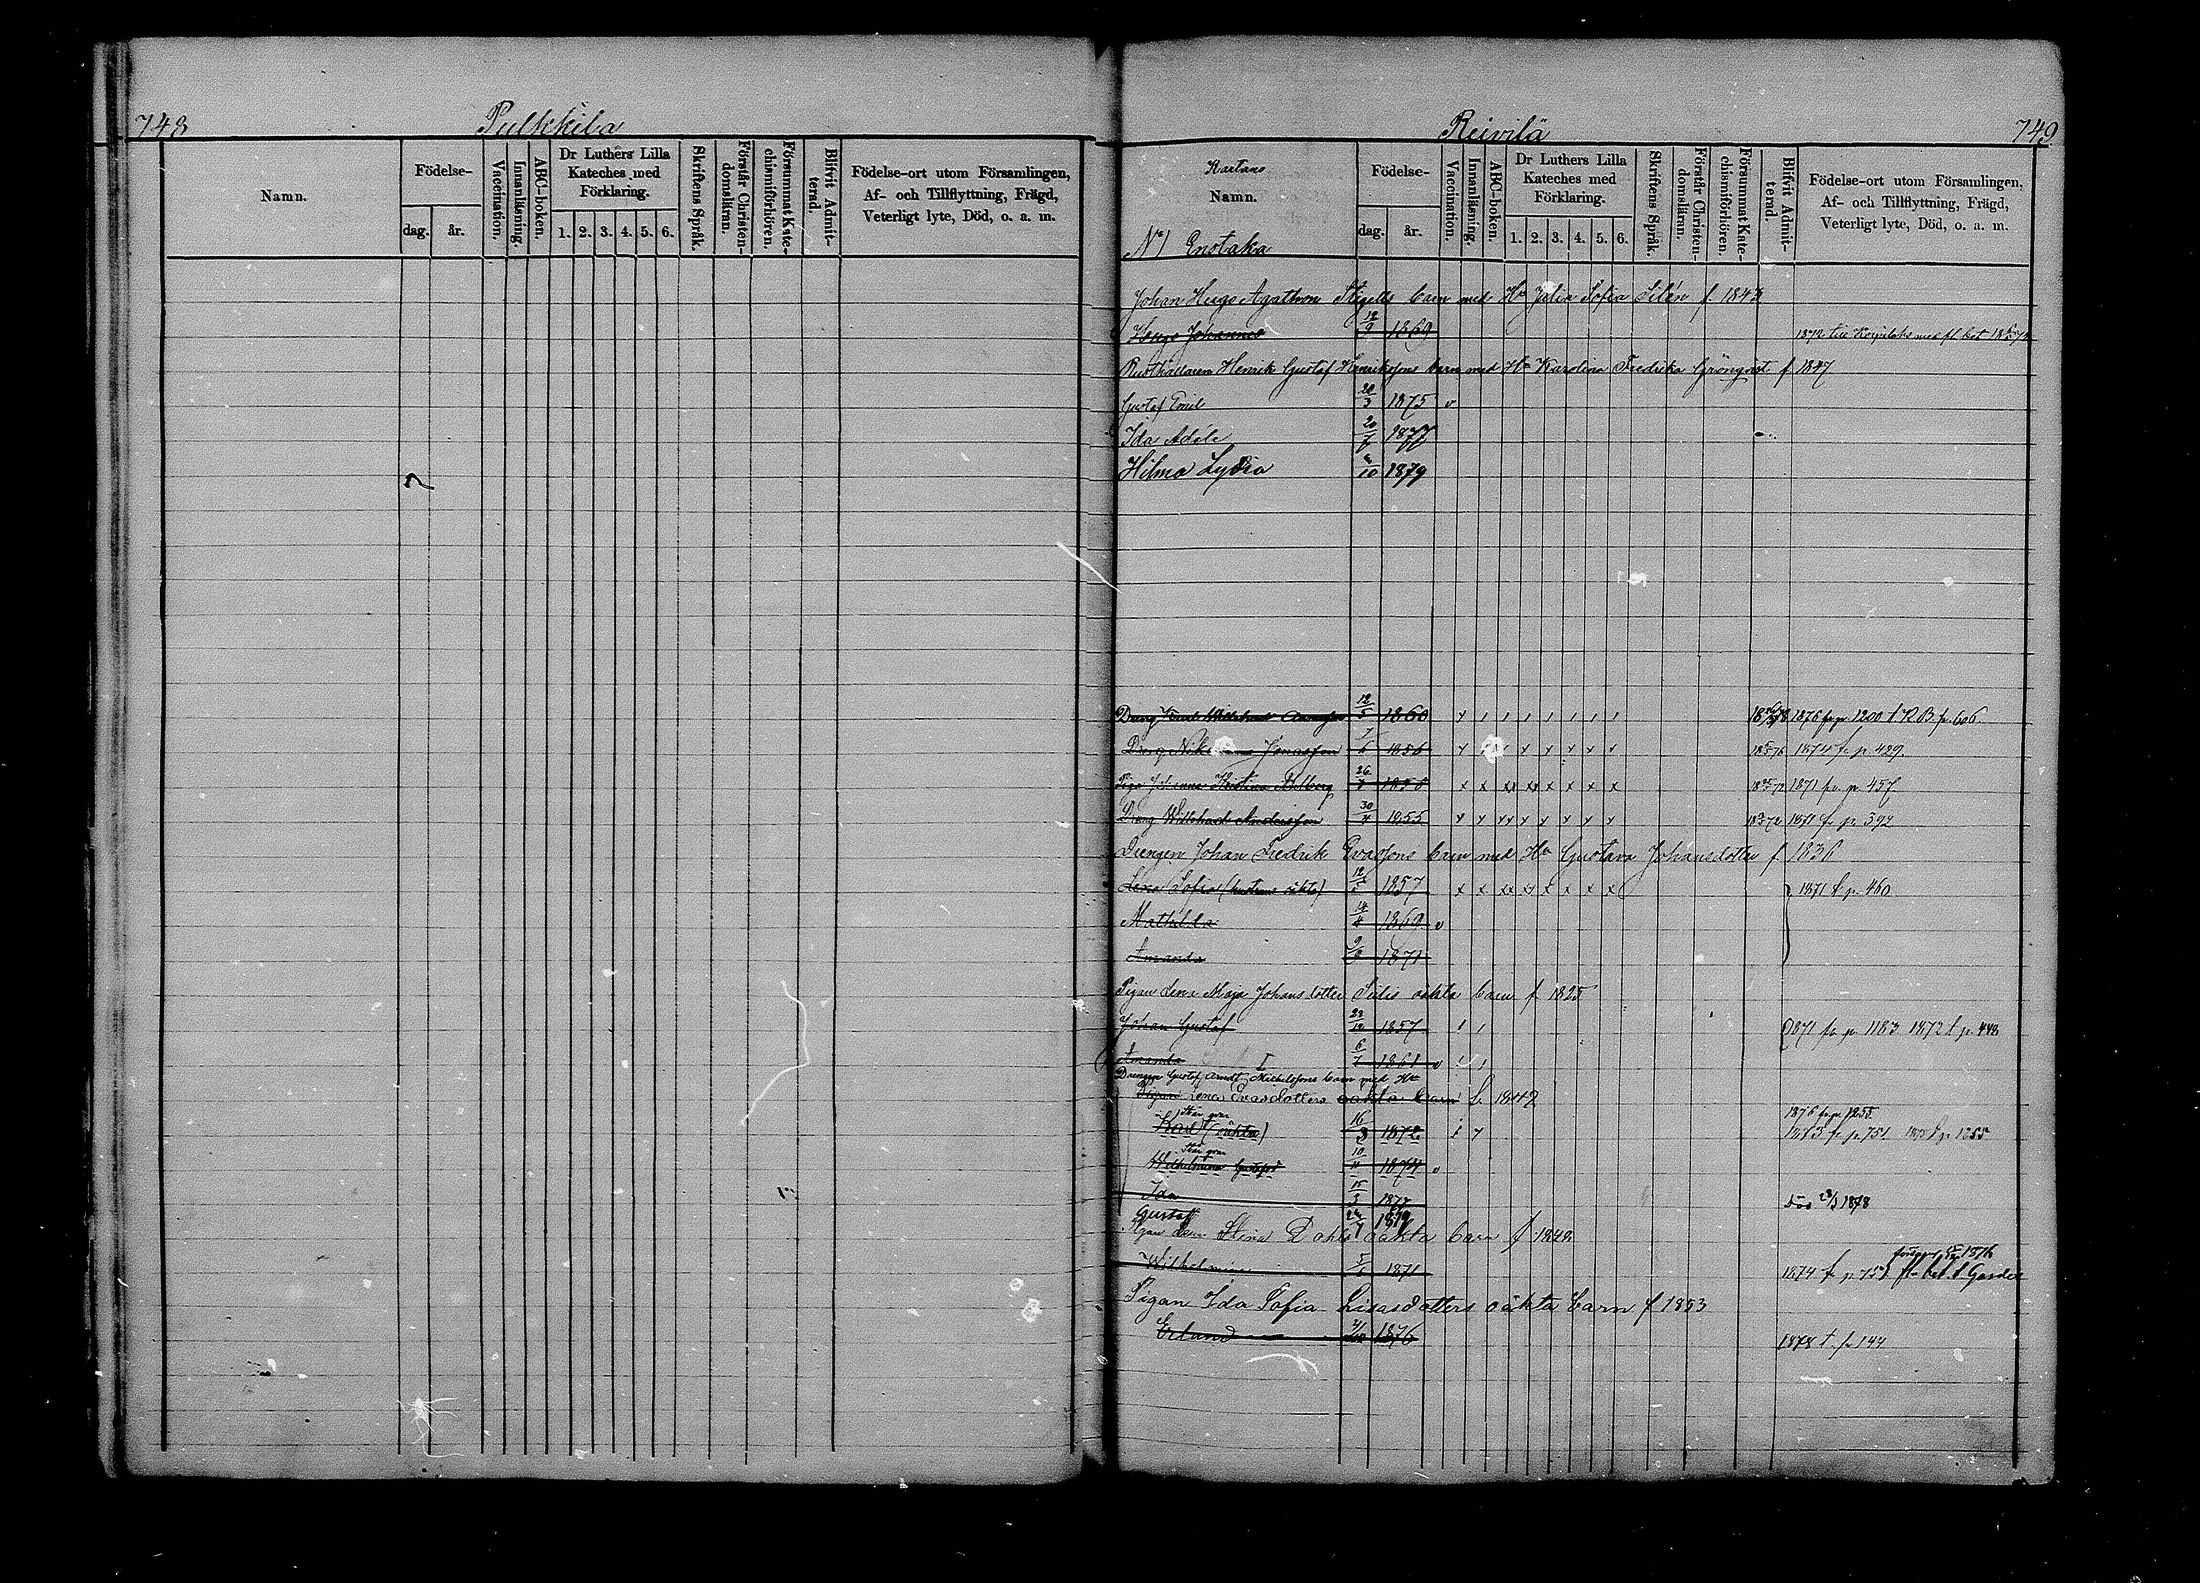 748
Pulkkila
Namn.
Födelse-
dag.
år.
Vaccination.
Innanläsning.
ABC-boken.
Dr Luthers Lilla
Kateches med
Förklaring.
1. 2. 3. 4. 5. 6.
Skriftens Språk.
Förstår Christen-
domsläran.
Försummat Kate-
chismiförhören.
Blifvit Admit-
terad.
Födelse-ort utom Församlingen,
Af- och Tillflyttning, Frägd,
Veterligt lyte, Död, o. a. m.
Reivilä
749
Namn.
No 1 Enotaka
Födelse-
dag.
år.
Vaccination.
Innanläsning.
ABC-boken.
Dr Luthers Lilla
Kateches med
Förklaring.
1. 2. 3. 4. 5. 6.
Skriftens Språk.
Förstår Christen-
domsläran.
Försummat Kate-
chismiförhören.
Blifvit Admit-
terad.
Födelse-ort utom Församlingen,
Af- och Tillflyttning, Frägd,
Veterligt lyte, Död, o. a. m.
Johan Hugo Agathon barn med Hu Julia Sofia Silén f. 1843
Hugo Johannes 12/9 1869
Rusthållaren Henrik Gustaf Henrikssons barn med Hu Karolina Fredrika Grönqvist f 1847
Gustaf Emil 20/3 1875 v
Ida Adéle 1877
Hilma Lydia 1879
Dreng 12/5 1860 1876 fr p. 1200 t R B p. 606
Dreng Jonasson 1856 1874 fr p 429
Piga Johanna Kristina 26 1871 fr. p. 457
Dreng Willehad Andersson 30/4 1855 1871 fr p. 392
Drengen Johan Fredrik Evassons barn med Hu Gustava Johansdotter f 1836
Lena Sofia (hustruns oäkta) 1857 1871 t p. 460
Mathilda 14/4 1869 v
Amanda 9/9 1871
Pigan Lena Maja Johansdotter oäkta barn f 1825
Johan Gustaf 23/12 1857 1871 fr p. 1183 1872 t p. 448
Amanda 6/7 1861 v
Drengen Gustaf Arndt Mickelssons barn med Hu
Pigan Lena Evasdotters oäkta barn f. 1842
Står qvar 1876 fr p. 1255
Karl (oäkta) 16/3 1872 1873 fr p. 751 1875 t p 1255
Står qvar
Wilhelmina 10/11 1874 v
Ida 15/3 1877 död 23/3 1878
Gustaf 1879
Pigan Stina Dahls oäkta barn f 1842
Wilhelmina 1871 1874 fr p 751
Pigan Ida Sofia Lisasdotters oäkta barn f 1853
Erland 1876 1878 t. p 144